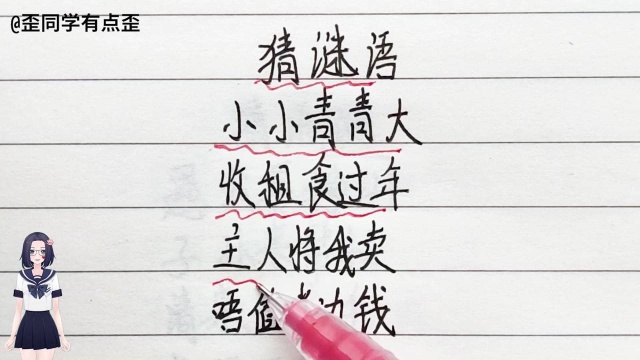 @歪同学有点歪
猜谜语
小小青青大
收租食过年
主人将我卖
唔值 边钱